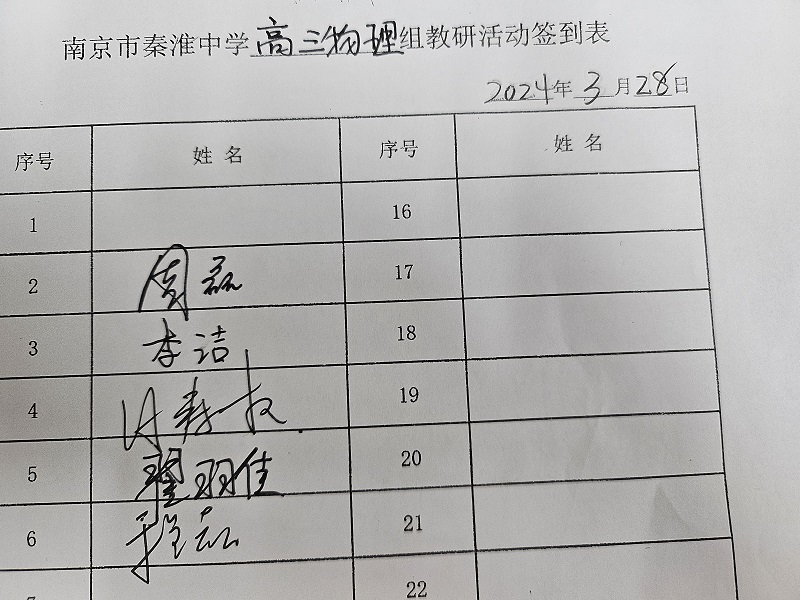 南京市秦淮中学高三物理组教研活动签到表
2024年3月28日
序号 姓名 序号 姓名
1 16
2 周磊 17
3 李洁 18
4 19
5 翟羽佳 20
6 程磊 21
7 22